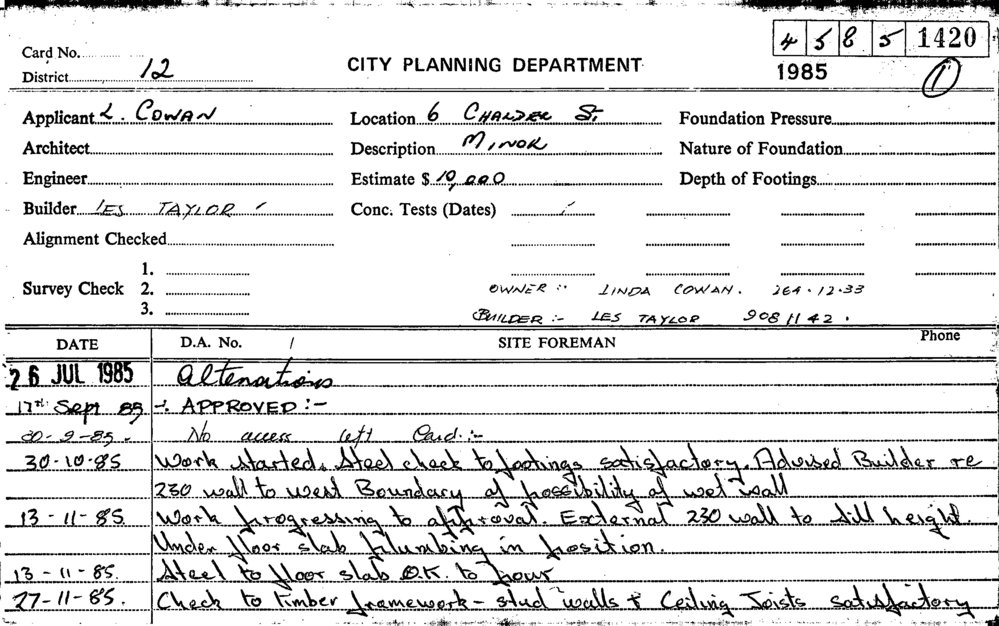 4 5 8 5 1420
Card No.
District 12
CITY PLANNING DEPARTMENT
1985
1
Applicant L. COWAN
Location 6 CHALDER St.
Foundation Pressure
Architect
Description MINOR
Nature of Foundation
Engineer
Estimate $ 10,000
Depth of Footings
Builder LES TAYLOR
Conc. Tests (Dates)
Alignment Checked
Survey Check
1.
2.
3.
OWNER :- LINDA COWAN. 264.12.33
BUILDER :- LES TAYLOR 908 1142.
DATE D.A. No. / SITE FOREMAN Phone
26 JUL 1985 Alterations
17th Sept 85 -: APPROVED :-
30-9-85 - No access left Card :-
30-10-85 Work started. Steel check to footings satisfactory. Advised Builder re
230 wall to west Boundary of possibility of wet wall
13-11-85. Work progressing to approval. External 230 wall to sill height.
Under floor slab plumbing in position.
13-11-85. Steel to floor slab O.K. to pour
27-11-85. Check to timber framework - stud walls & Ceiling Joists satisfactory